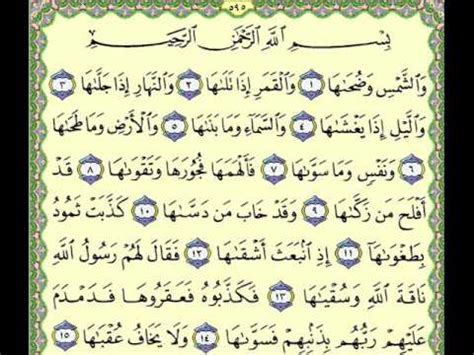 ٥٩٥
بِسْمِ اللَّهِ الرَّحْمَٰنِ الرَّحِيمِ
وَالشَّمْسِ وَضُحَىٰهَا ١ وَالْقَمَرِ إِذَا تَلَىٰهَا ٢ وَالنَّهَارِ إِذَا جَلَّىٰهَا ٣
وَالَّيْلِ إِذَا يَغْشَىٰهَا ٤ وَالسَّمَاءِ وَمَا بَنَىٰهَا ٥ وَالْأَرْضِ وَمَا طَحَىٰهَا
٦ وَنَفْسٍ وَمَا سَوَّىٰهَا ٧ فَأَلْهَمَهَا فُجُورَهَا وَتَقْوَىٰهَا ٨ قَدْ
أَفْلَحَ مَن زَكَّىٰهَا ٩ وَقَدْ خَابَ مَن دَسَّىٰهَا ١٠ كَذَّبَتْ ثَمُودُ
بِطَغْوَىٰهَا ١١ إِذِ انۢبَعَثَ أَشْقَىٰهَا ١٢ فَقَالَ لَهُمْ رَسُولُ اللَّهِ
نَاقَةَ اللَّهِ وَسُقْيَٰهَا ١٣ فَكَذَّبُوهُ فَعَقَرُوهَا فَدَمْدَمَ
عَلَيْهِمْ رَبُّهُم بِذَنۢبِهِمْ فَسَوَّىٰهَا ١٤ وَلَا يَخَافُ عُقْبَٰهَا ١٥